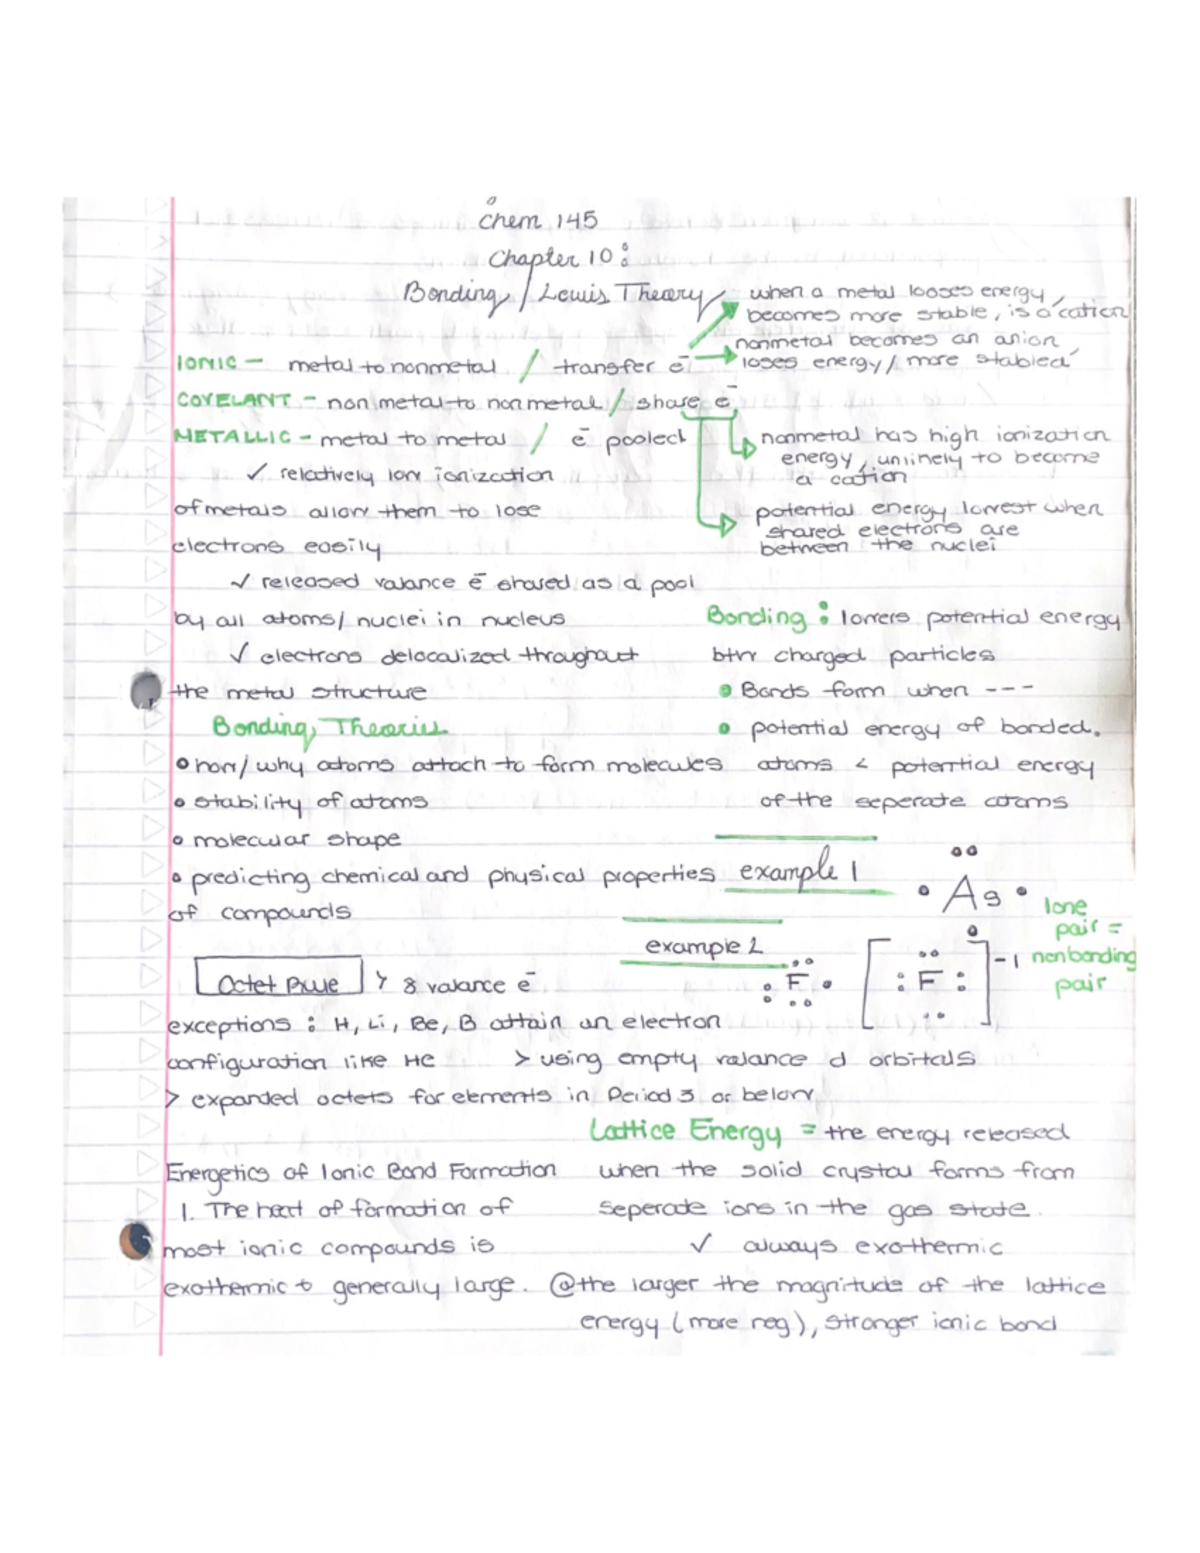 Chem 145
Chapter 10:
Bonding / Lewis Theory
when a metal looses energy,
becomes more stable, is a cation
nonmetal becomes an anion,
loses energy / more stabled
IONIC — metal to nonmetal / transfer e⁻
COVELANT - non metal to non metal / share e⁻
METALLIC - metal to metal / e⁻ pooled
nonmetal has high ionization
energy, unlinely to become
a cation
✓ relatively low ionization
of metals allow them to lose
electrons easily
potential energy lowest when
shared electrons are
between the nuclei
✓ released valance e⁻ shared as a pool
by all atoms / nuclei in nucleus
✓ electrons delocalized throughout
the metal structure
Bonding: lowers potential energy
btw charged particles
• Bonds form when ---
• potential energy of bonded.
atoms < potential energy
of the seperate atoms
Bonding Theories
• how / why atoms attach to form molecules
• stability of atoms
• molecular shape
• predicting chemical and physical properties
of compounds
example 1
As
lone
pair =
nonbonding
pair
example 2
F
[:F:] -1
Octet Rule > 8 valance e⁻
exceptions: H, Li, Be, B attain an electron
configuration like He > using empty valance d orbitals
> expanded octets for elements in Period 3 or below
Lattice Energy = the energy released
when the solid crystal forms from
seperate ions in the gas state.
✓ always exothermic
@ the larger the magnitude of the lattice
energy (more neg.), stronger ionic bond
Energetics of Ionic Bond Formation
1. The heat of formation of
most ionic compounds is
exothermic & generally large.